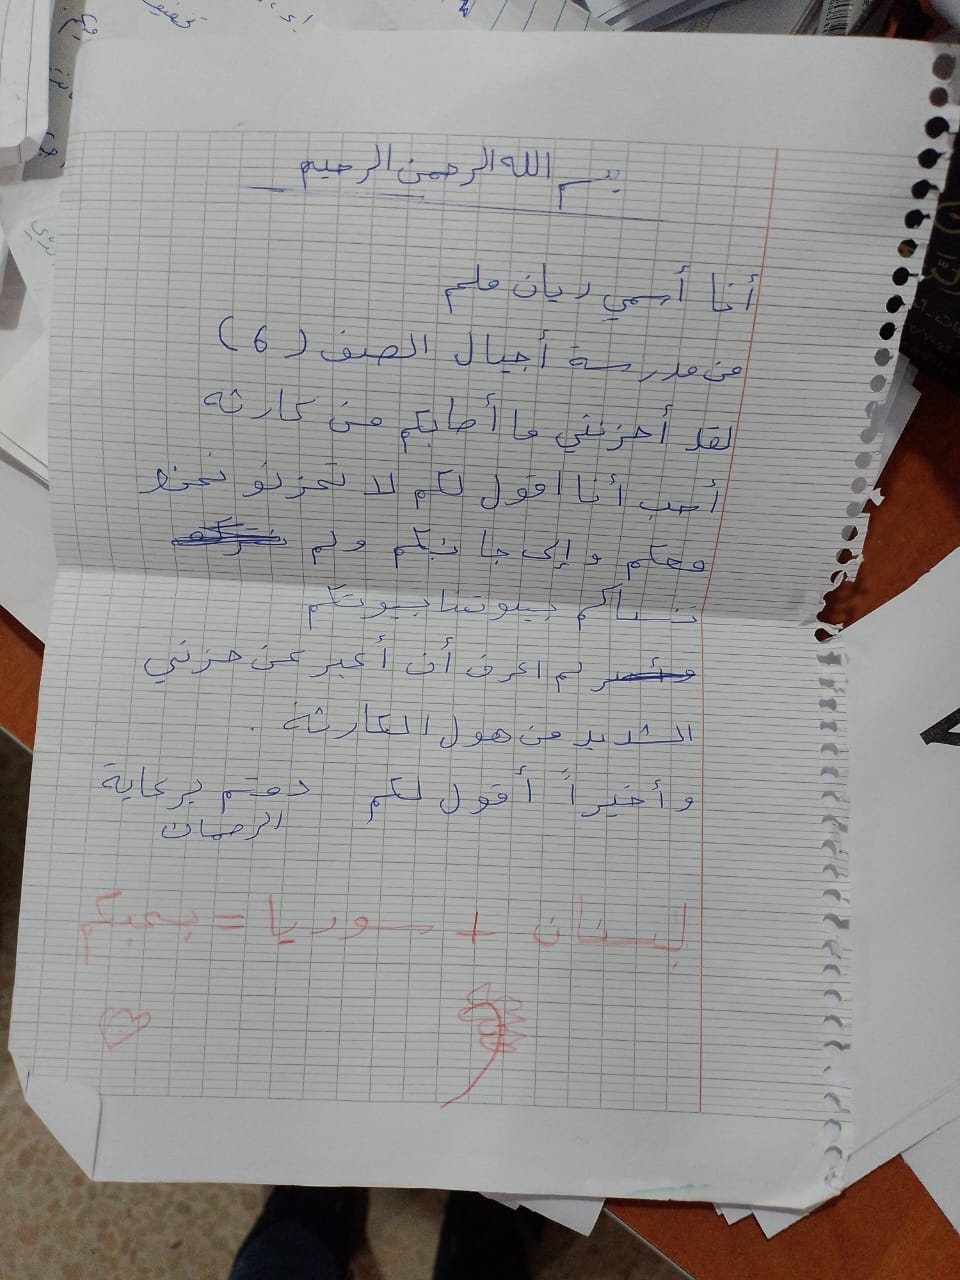 بسم الله الرحمن الرحيم
أنا أسمي ريان ملحم
من مدرسة أجيال الصف (6)
لقد أحزنني ما أصابكم من كارثه
أحب أنا اقول لكم لا تحزنو نحنو
معكم وإلى جانبكم ولم
ننساكم بيوتنا بيوتكم
لم اعرف أن أعبر عن حزني
الشديد من هول الكارثة .
وأخيراً أقول لكم دمتم برعاية
الرحمان
لبنان + سوريا = بحبكم